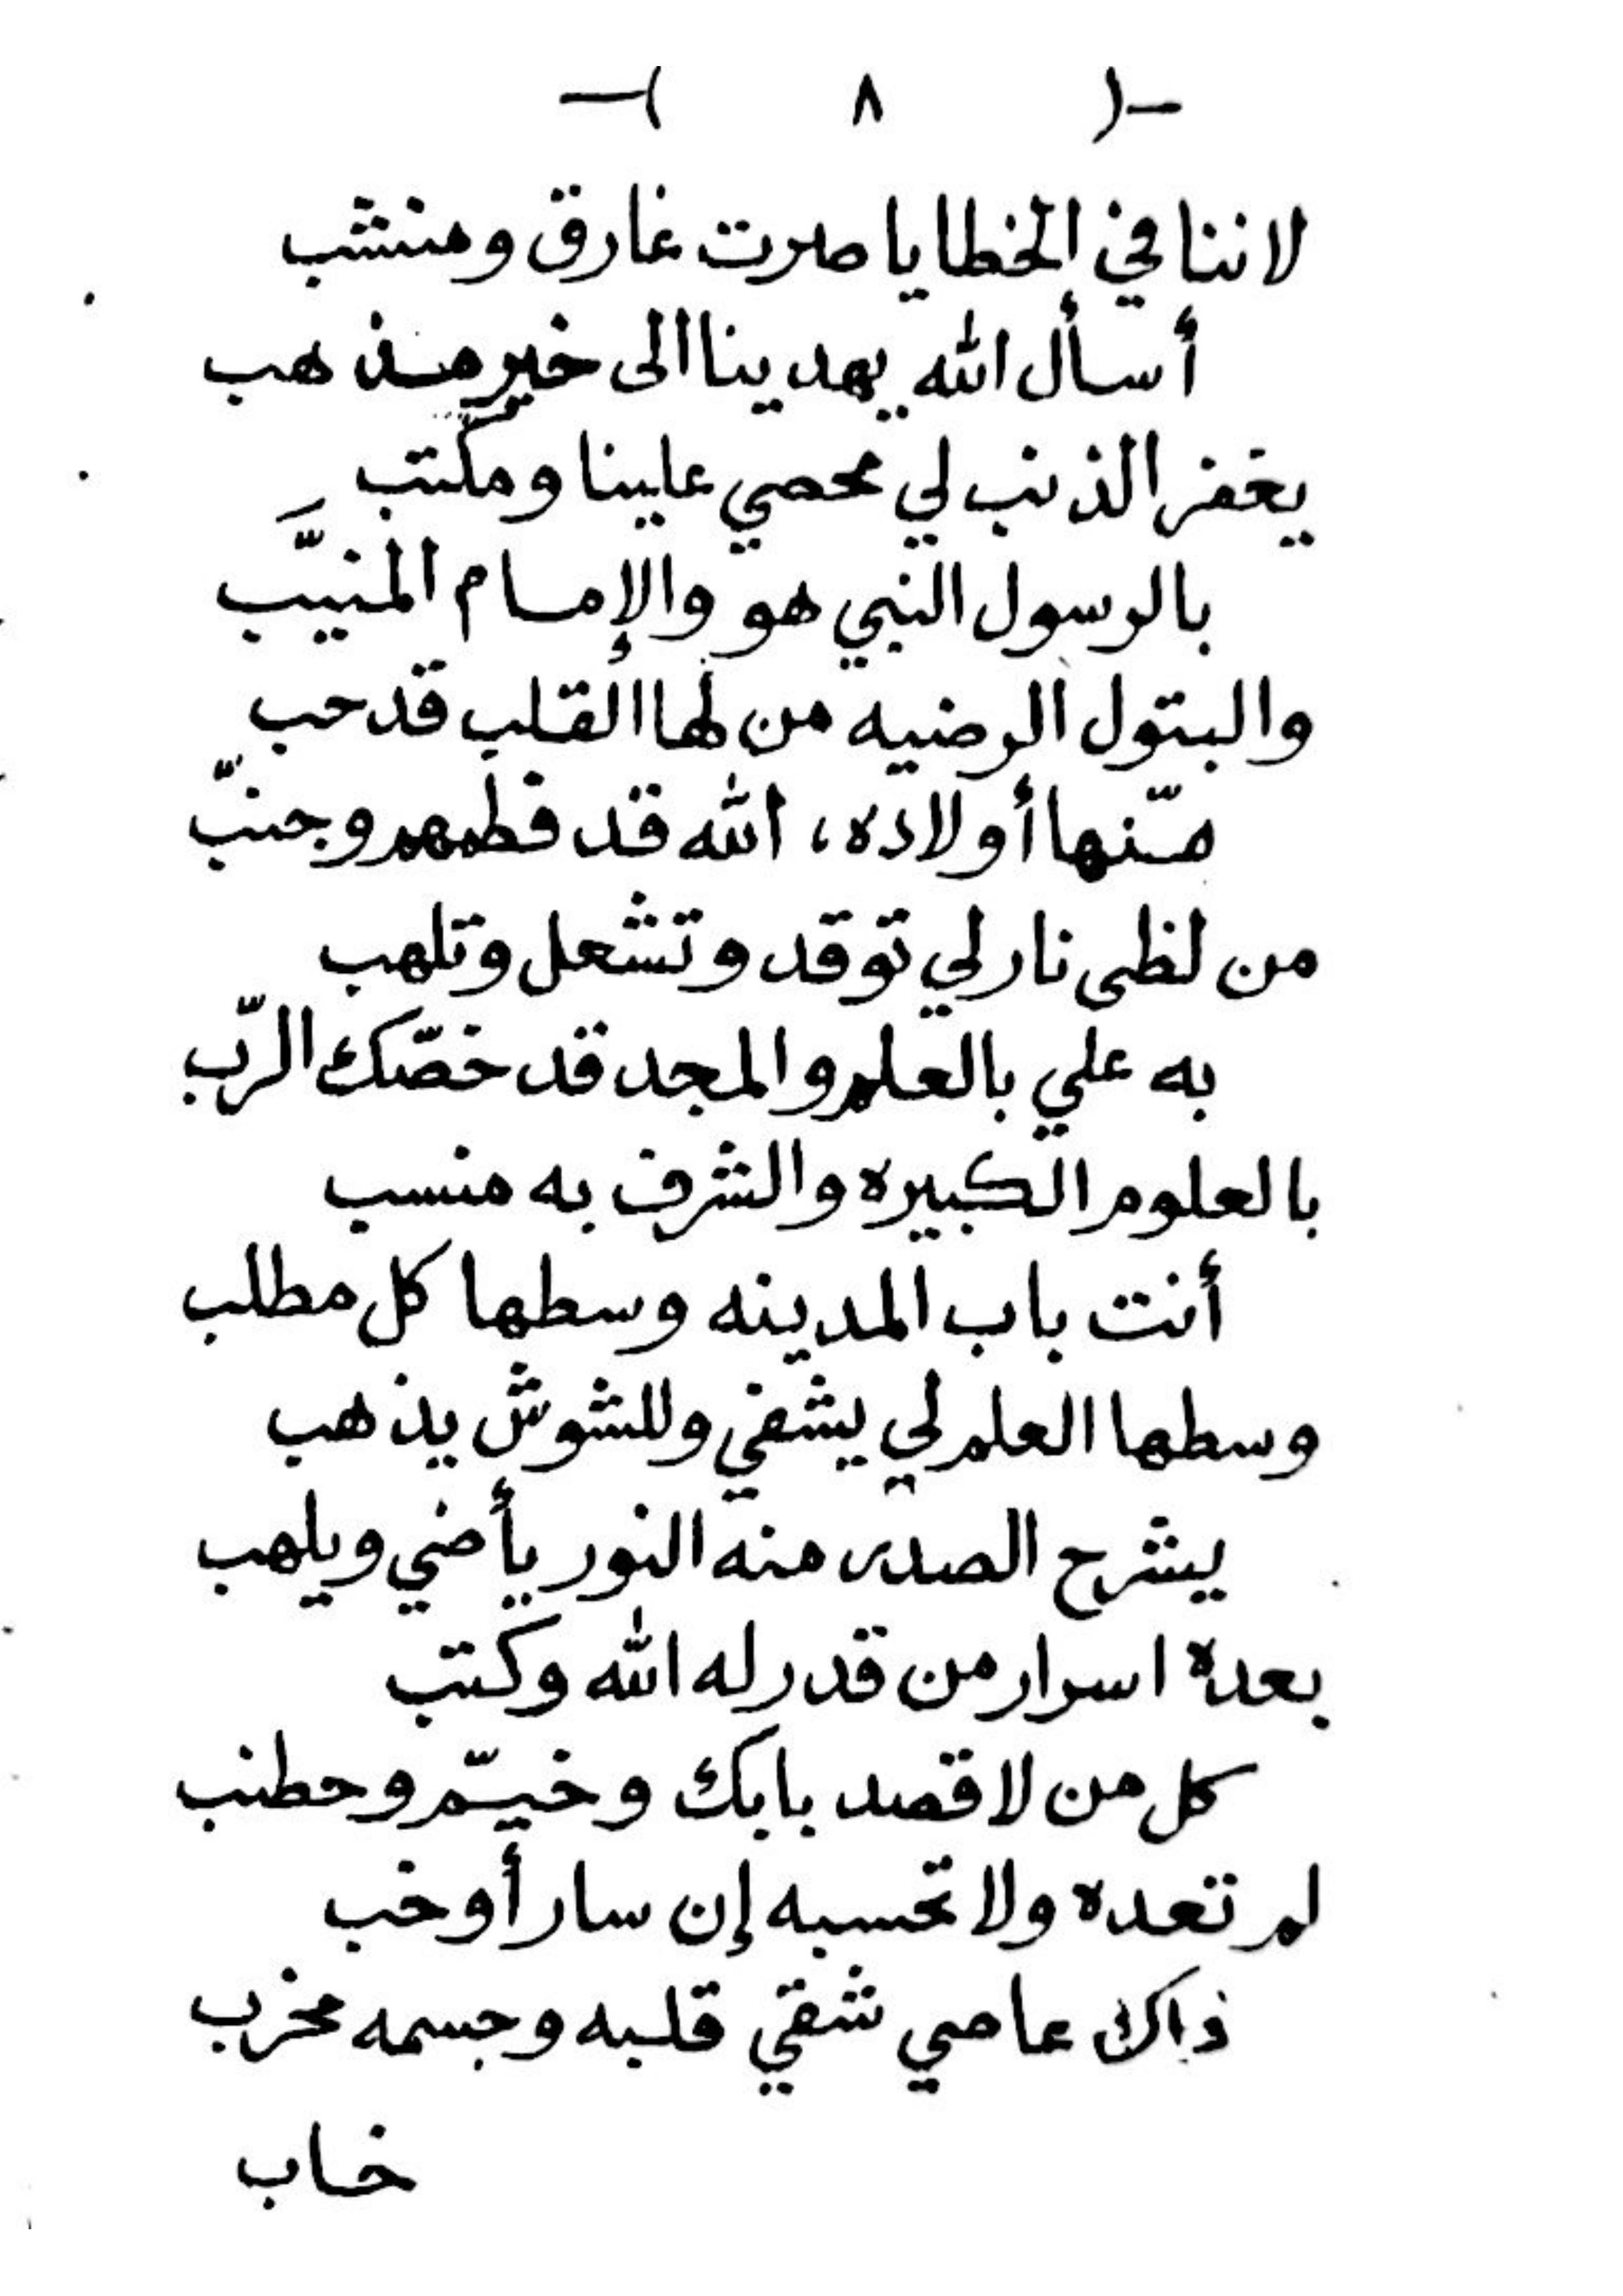 -( ٨ )-
لاننا في الخطايا صرت غارق ومنشب
أسأل الله يهدينا الى خير مذهب
يغفر الذنب لي محصي علينا ومكتب
بالرسول النبي هو والإمام المنيَّب
والبتول الرضيه من لها القلب قد حب
منّها أولاده، الله قد فطمهم وجنبّ
من لظى نار لي توقد وتشعل وتلهب
به علي بالعلم والمجد قد خصّك الرّب
بالعلوم الكبيره والشرف به منسب
أنت باب المدينه وسطها كل مطلب
وسطها العلم لي يشفي وللشوش يذهب
يشرح الصدر منه النور يأضي ويلهب
بعدة اسرار من قدر له الله وكتب
كل من لا قصد بابك وخيّم وحطنب
لم تعده ولا تحسبه إن سار أو خب
ذاك عاصي شقي قلبه وجسمه مخرب
خاب